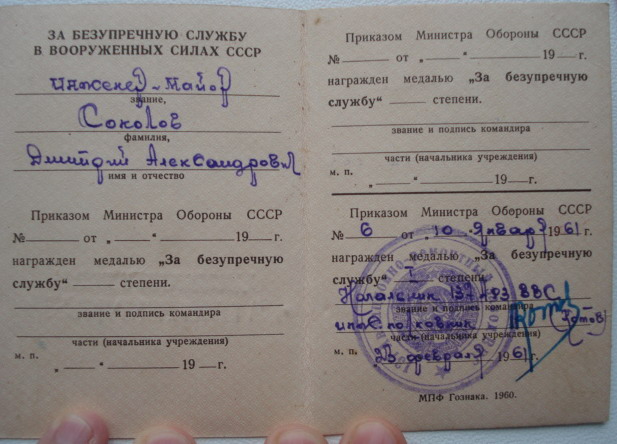 ЗА БЕЗУПРЕЧНУЮ СЛУЖБУ
В ВООРУЖЕННЫХ СИЛАХ СССР
Инженер-Майор
звание,
Соколов
фамилия,
Дмитрий Александрович
имя и отчество
Приказом Министра Обороны СССР
№ от „ “ 19 г.
награжден медалью „За безупречную
службу“ степени.
звание и подпись командира
части (начальника учреждения)
м. п.
„ “ 19 г.
Приказом Министра Обороны СССР
№ от „ “ 19 г.
награжден медалью „За безупречную
службу“ степени.
звание и подпись командира
части (начальника учреждения)
м. п.
„ “ 19 г.
Приказом Министра Обороны СССР
№ 6 от „10“ января 1961 г.
награжден медалью „За безупречную
службу“ I степени.
Начальник ВВС
звание и подпись командира
полковник (Котов)
части (начальника учреждения)
м. п.
„23“ февраля 1961 г.
МПФ Гознака. 1960.